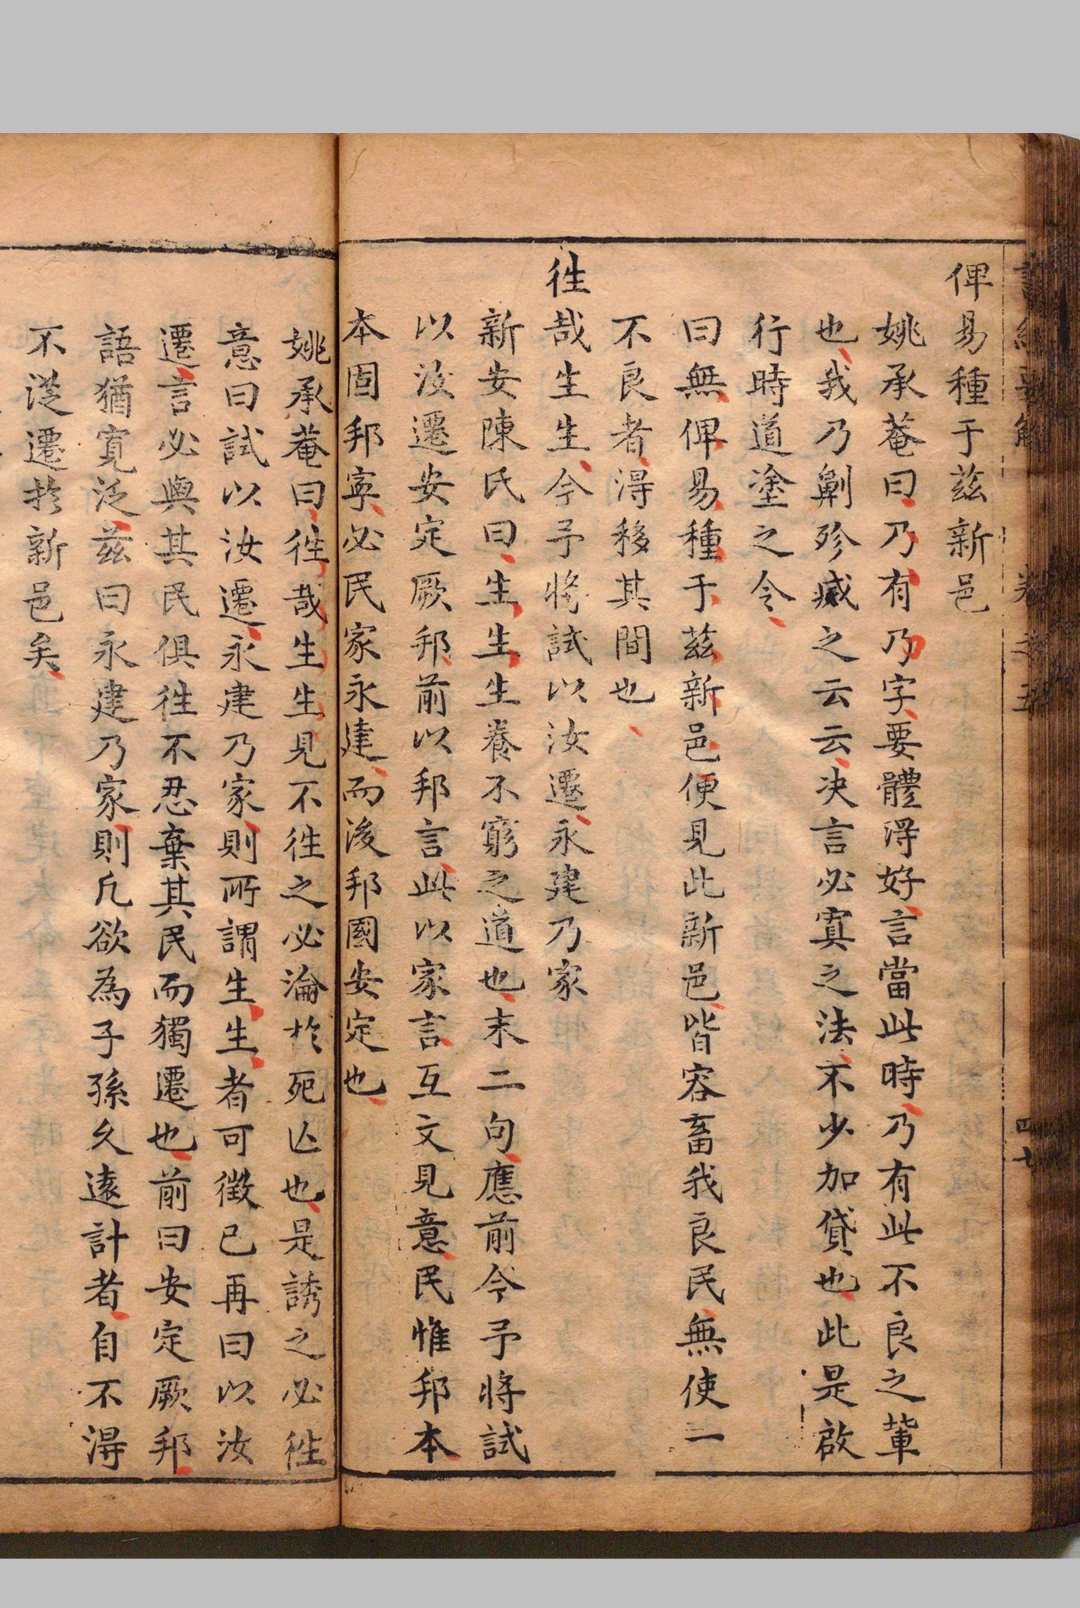 俾易種于茲新邑
姚承菴曰乃有乃字要體淂好言當此時乃有此不良之輩
也我乃劓殄烕之云云决言必寘之法不少加貸也此是啟
行時道塗之令
曰無俾易種于茲新邑便見此新邑皆容畜我良民無使一
不良者淂移其間也
徃哉生生今予將試以汝遷永建乃家
新安陳氏曰生生生養不窮之道也末二句應前今予將試
以汝遷安定厥邦前以邦言此以家言互文見意民惟邦本
本固邦寧必民家永建而後邦國安定也
姚承菴曰徃哉生生見不徃之必淪於死亾也是誘之必徃
意曰試以汝遷永建乃家則所謂生生者可徵已再曰以汝
遷言必與其民俱徃不忍棄其民而獨遷也前曰安定厥邦
語猶寛泛茲曰永建乃家則凢欲為子孫久遠計者自不淂
不従遷扵新邑矣